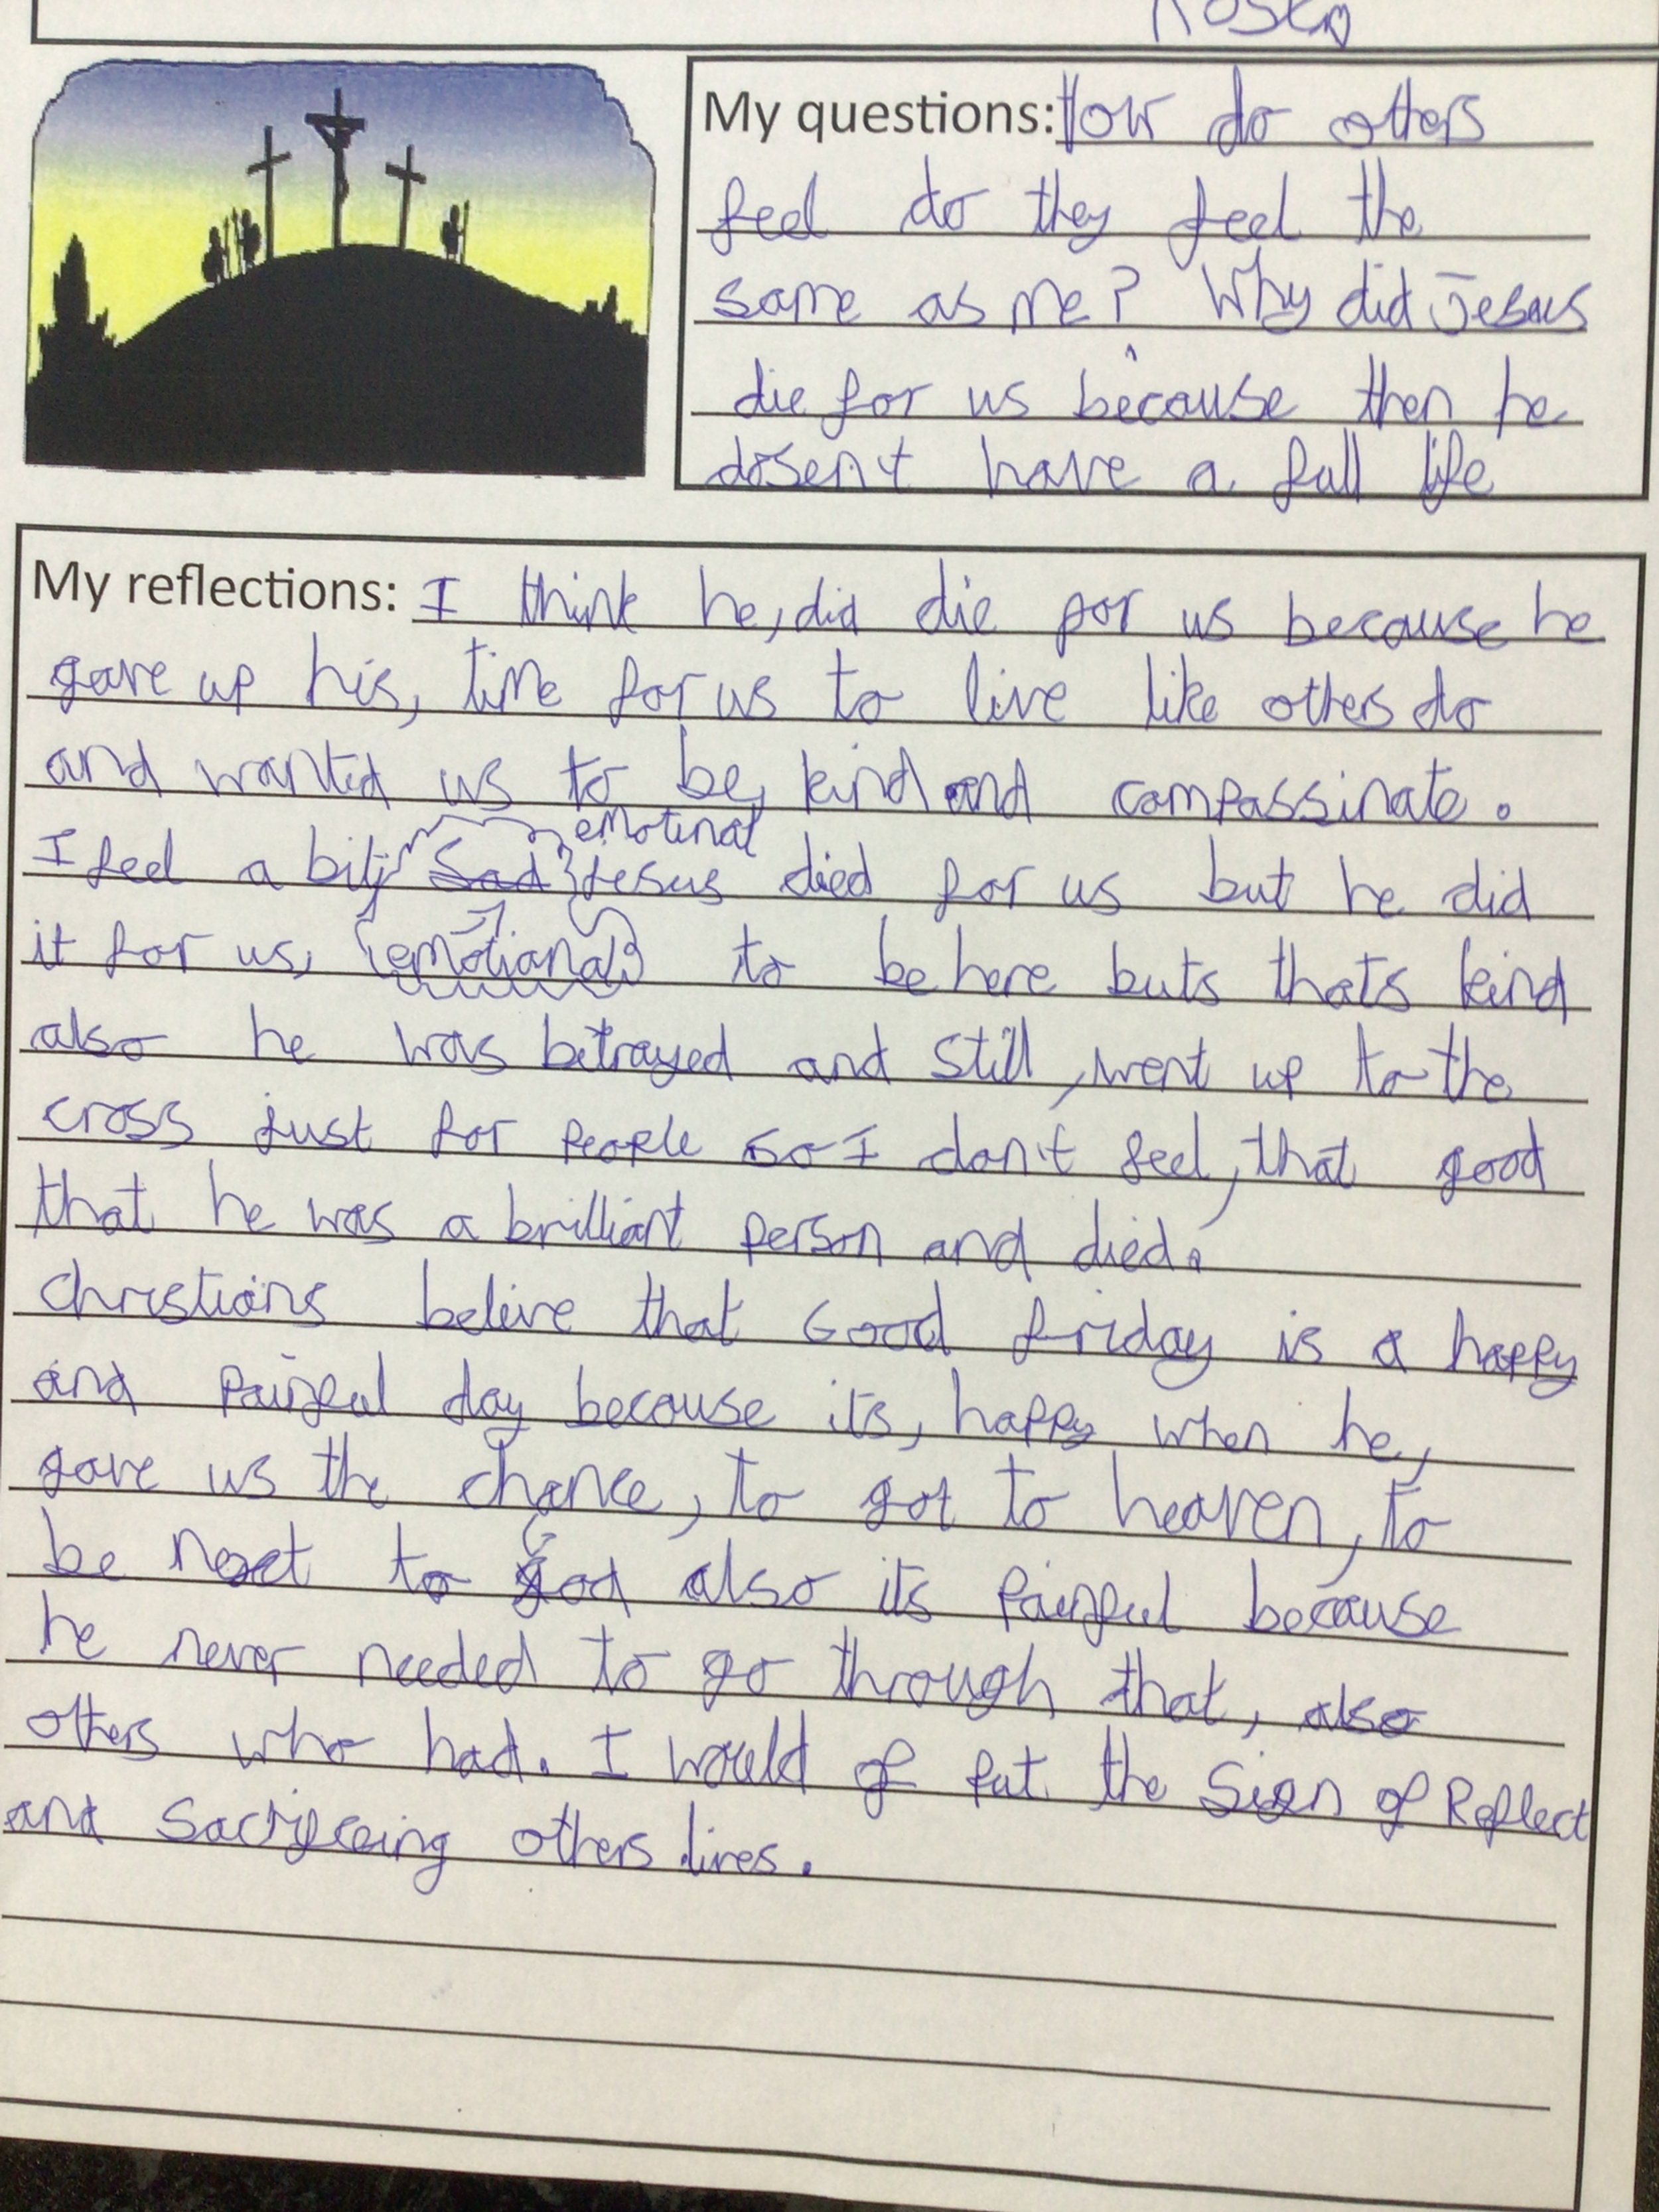 My questions: How do others
feel do they feel the
same as me? Why did Jesus
die for us because then he
dosen't have a full life
My reflections: I think he, did die for us because he
gave up his, time for us to live like others do
and wanted us to be, kind and compassinate.
emotinal
I feel a bit, sad Jesus died for us but he did
it for us, (emotional) to be here buts thats kind
also he was betrayed and still, went up to the
cross just for people so I don't feel, that good
that he was a brilliant person and died.
Christians beleive that Good friday is a happy
and painful day because its, happy when he,
gave us the chance, to got to heaven, to
be next to God also its painful because
he never needed to go through that, also
others who had. I would of put the sign of Reflect
and sacrificeing others lives.